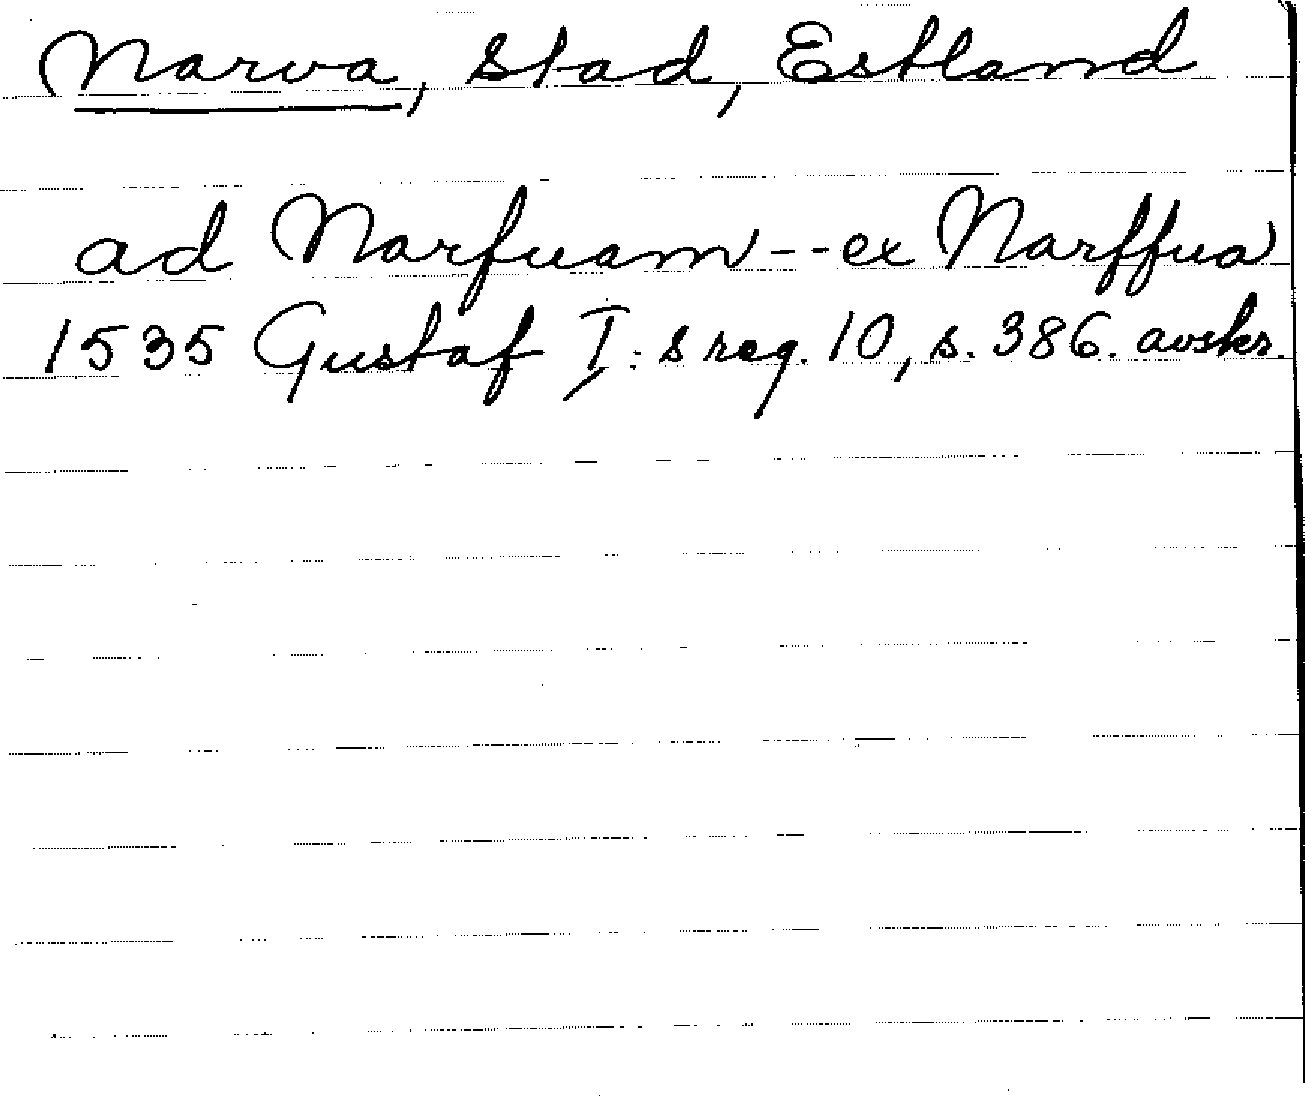 Narva, Stad, Estland
ad Narfuam -- ex Narffua
1535 Gustaf I:s reg. 10, s. 386. avskr.